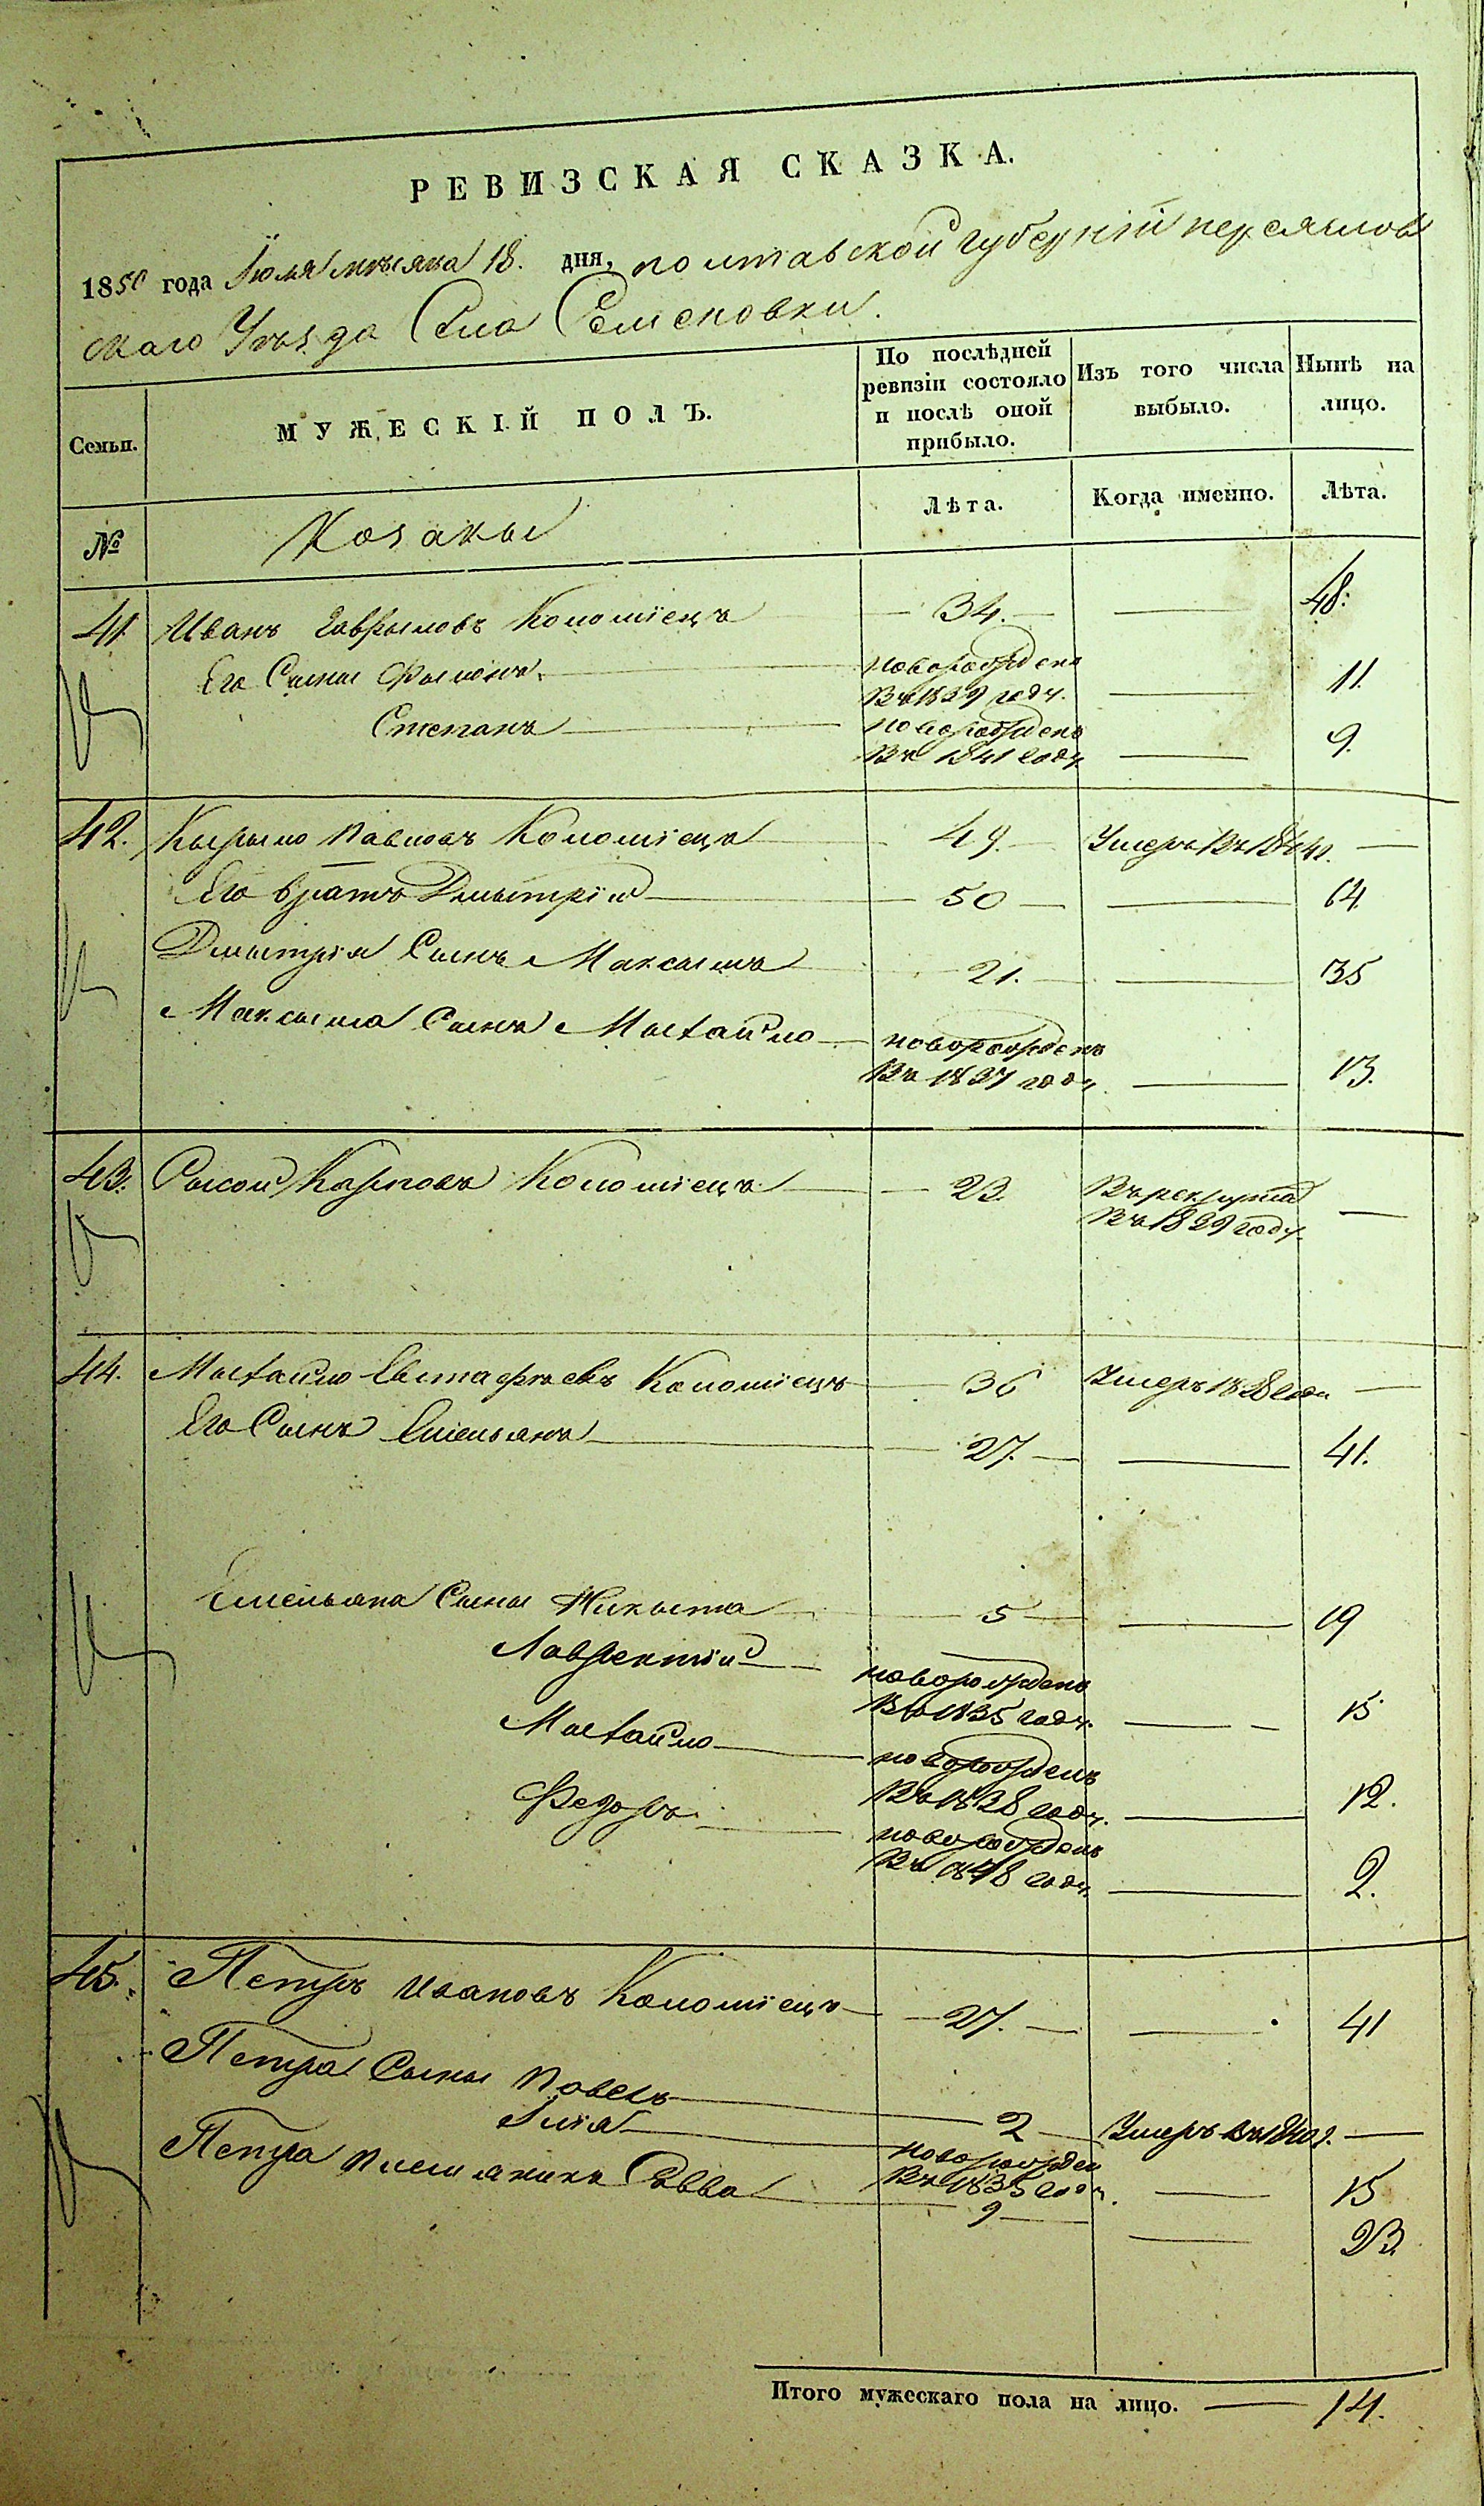 РЕВИЗСКАЯ СКАЗКА.
1850 года Іюля мѣсяца 18. дня, полтавской губерніи переяслов
скаго Уѣзда Села Семеновки.
Семьи.
МУЖЕСКІЙ ПОЛЪ.
По послѣдней ревизіи состояло и послѣ оной прибыло.
Изъ того числа выбыло.
Нынѣ на лицо.
№
Козакы
Лѣта.
Когда именно.
Лѣта.
41. Иванъ Гаврыловъ Коломіецъ — 34. — — 48.
Его Сыны Фылонъ — новорожденъ
въ 1839 году. — 11.
Степанъ — новорожденъ
въ 1841 году — 9.
42. Кырыло Павловъ Коломіецъ — 49. — Умеръ въ 1841. —
Его братъ Дмытрій — 50 — — 64.
Дмытрія Сынъ Максымъ — 21. — — 35
Максыма Сынъ Мыхайло — новорожденъ
въ 1837 году — 13.
43. Сысой Карповъ Коломіецъ — 23. Въ рекруты —
въ 1839 году.
44. Мыхайло Евстафіевъ Коломіецъ — 36 Умеръ 1838 года —
Его Сынъ Емельянъ — 27. — — 41.
Емельяна Сыны Никыта — 5 — — 19
Лаврентій — новорожденъ
въ 1835 году. — 15
Мыхайло — новорожденъ
въ 1838 году. — 12.
Федоръ — новорожденъ
въ 1848 году. — 2.
45. Петръ Ивановъ Коломіецъ — 27. — — 41
Петра Сыны Павелъ — 2 — Умеръ въ 1840 г. —
Илія — новорожден
въ 1835 году. — 15
Петра племянникъ Савва — 9 — — 23.
Итого мужескаго пола на лицо. — 14.